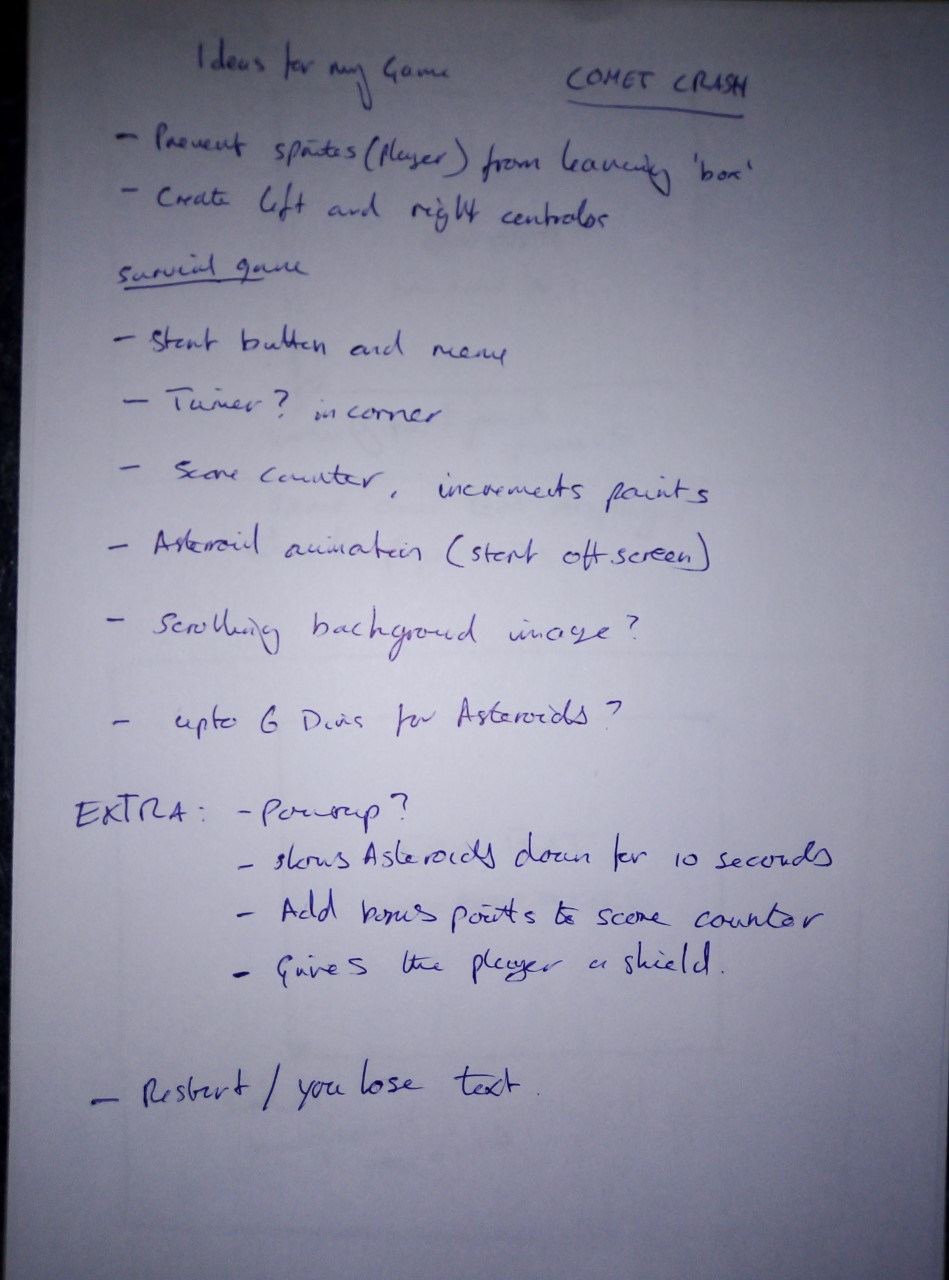 Ideas for my Game COMET CRASH
- Prevent sprites (Player) from leaving 'box'
- Create left and right controls
survival game
- Start button and menu
- Timer? in corner
- Score counter, increments points
- Asteroid animation (start off screen)
- Scrolling backgroud image?
- upto 6 Divs for Asteroids?
EXTRA: - Powerup?
- slows Asteroids down for 10 seconds
- Add bonus points to score counter
- Gives the player a shield.
- Restart / you lose text.